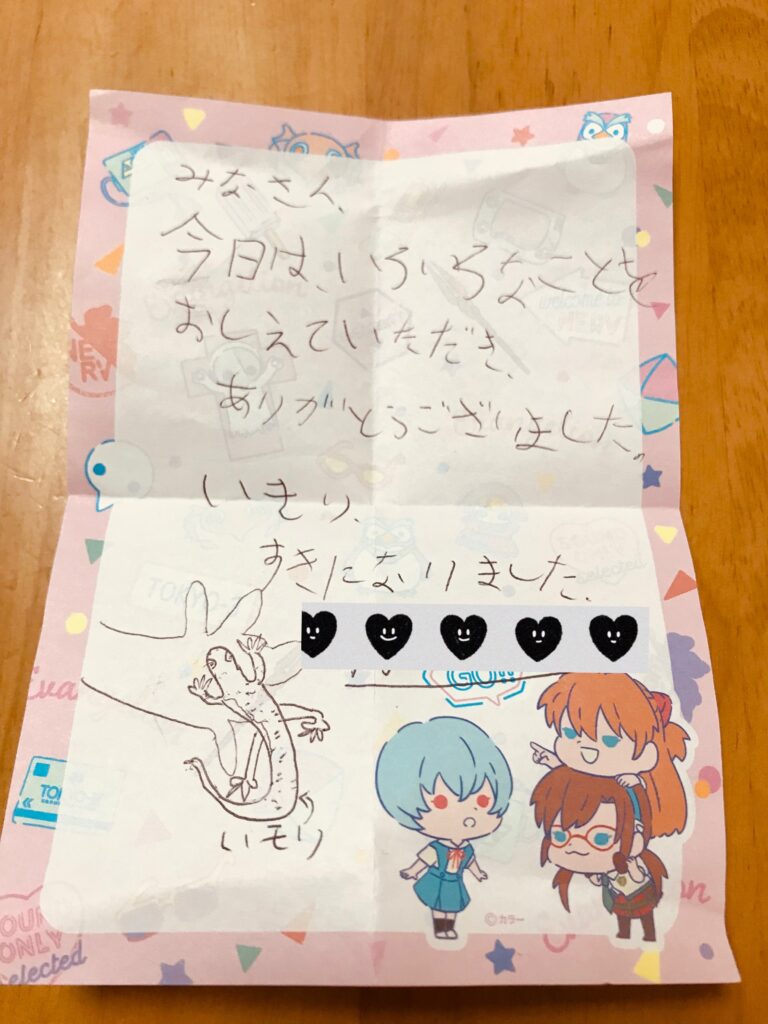 みなさん、
今日は、いろいろなことを
おしえていただき、
ありがとうございました。
いもり、
すきになりました。
いモリ
GO!!
NERV
TOKYO-3
©カラー
OUR
ONLY
selected